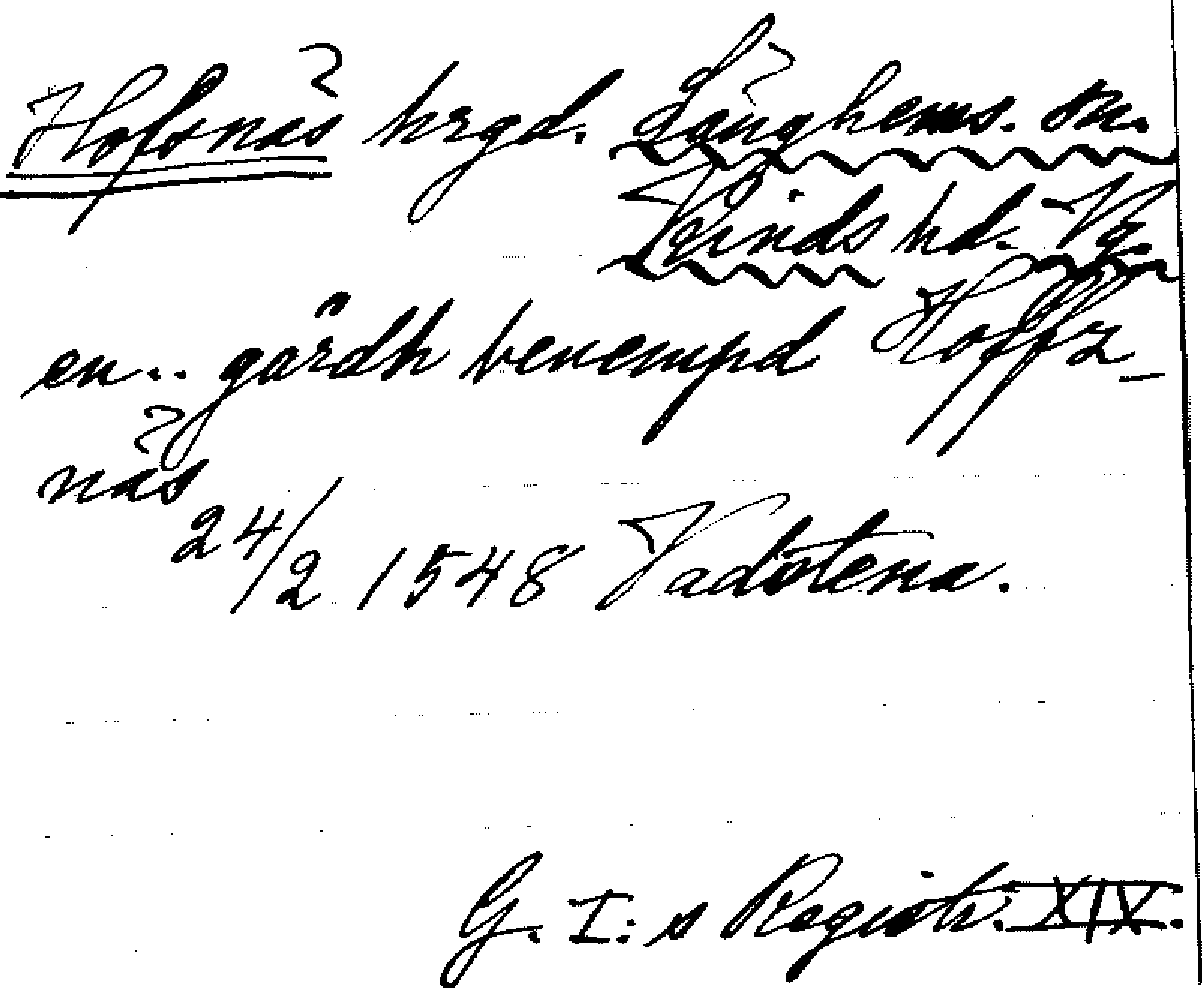 Hofsnäs hrgd. Länghems. sn.
Kinds hd. Vg.
en.. gårdh benempd Hoffz-
näs
24/2 1548 Vadstena.
G. I:s Registr. XIX.